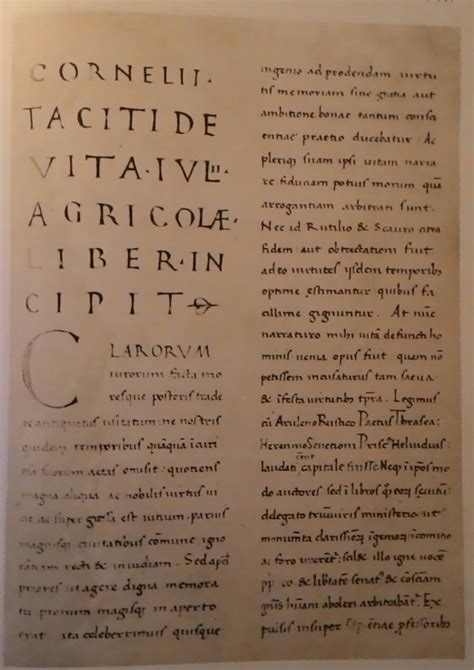 CORNELII·
TACITI DE
VITA·IVLII·
AGRICOLÆ·
LIBER·IN
CIPIT
CLARORVM
uirorum facta mo
resque posteris trade
re antiquitus usitatum ne nostris
quidem temporibus quāquā īcuri
osa suorum aetas omisit: quotiens
magna aliqua ac nobilis uirtus ui
cit ac supergressa est uitium paruis
magnisq; ciuitatibus cōmune igno
rantiam recti & inuidiam. Sed apd̄
priores ut agere digna memora
tu pronum magisq; in aperto
erat ita celeberrimus quisque
ingenio ad prodendam uirtu
tis memoriam sine gratia aut
ambitione bonae tantum consci
entiae praetio ducebatur. Ac
pleriq; suam ipsi uitam narra
re fiduciam potius morum quā
arrogantiam arbitrati sunt.
Nec id Rutilio & Scauro citra
fidem aut obtrectationi fuit
adeo uirtutes iisdem temporibs
optime estimantur quibus fa
cillime gignuntur. At nūc
narraturo mihi uitā defuncti ho
minis uenia opus fuit quam nō
petissem incusaturus tam saeua
& īfesta uirtutibs tp̄ra. Legimus
cū Aruleno Rustico Paetus Thrasea:
Herennio Senecioni Prisc; Heluidius:
laudati cent capitale fuisse. Neq; ī ipōs mo
do auctores sed ī libros q̄; eorȝ saeuitū:
delegato triumuiris ministerio ut
monumta clarissiorȝ īgeniorȝ ī comitio
ac foro urerent: scil& illo igne uocē
pp̄. ro. & libtatē senat; & cōsciam
gn̄is hūani aboleri arbitrabāt̄. Ex
pulsis insuper sapientiae p̄fessoribs